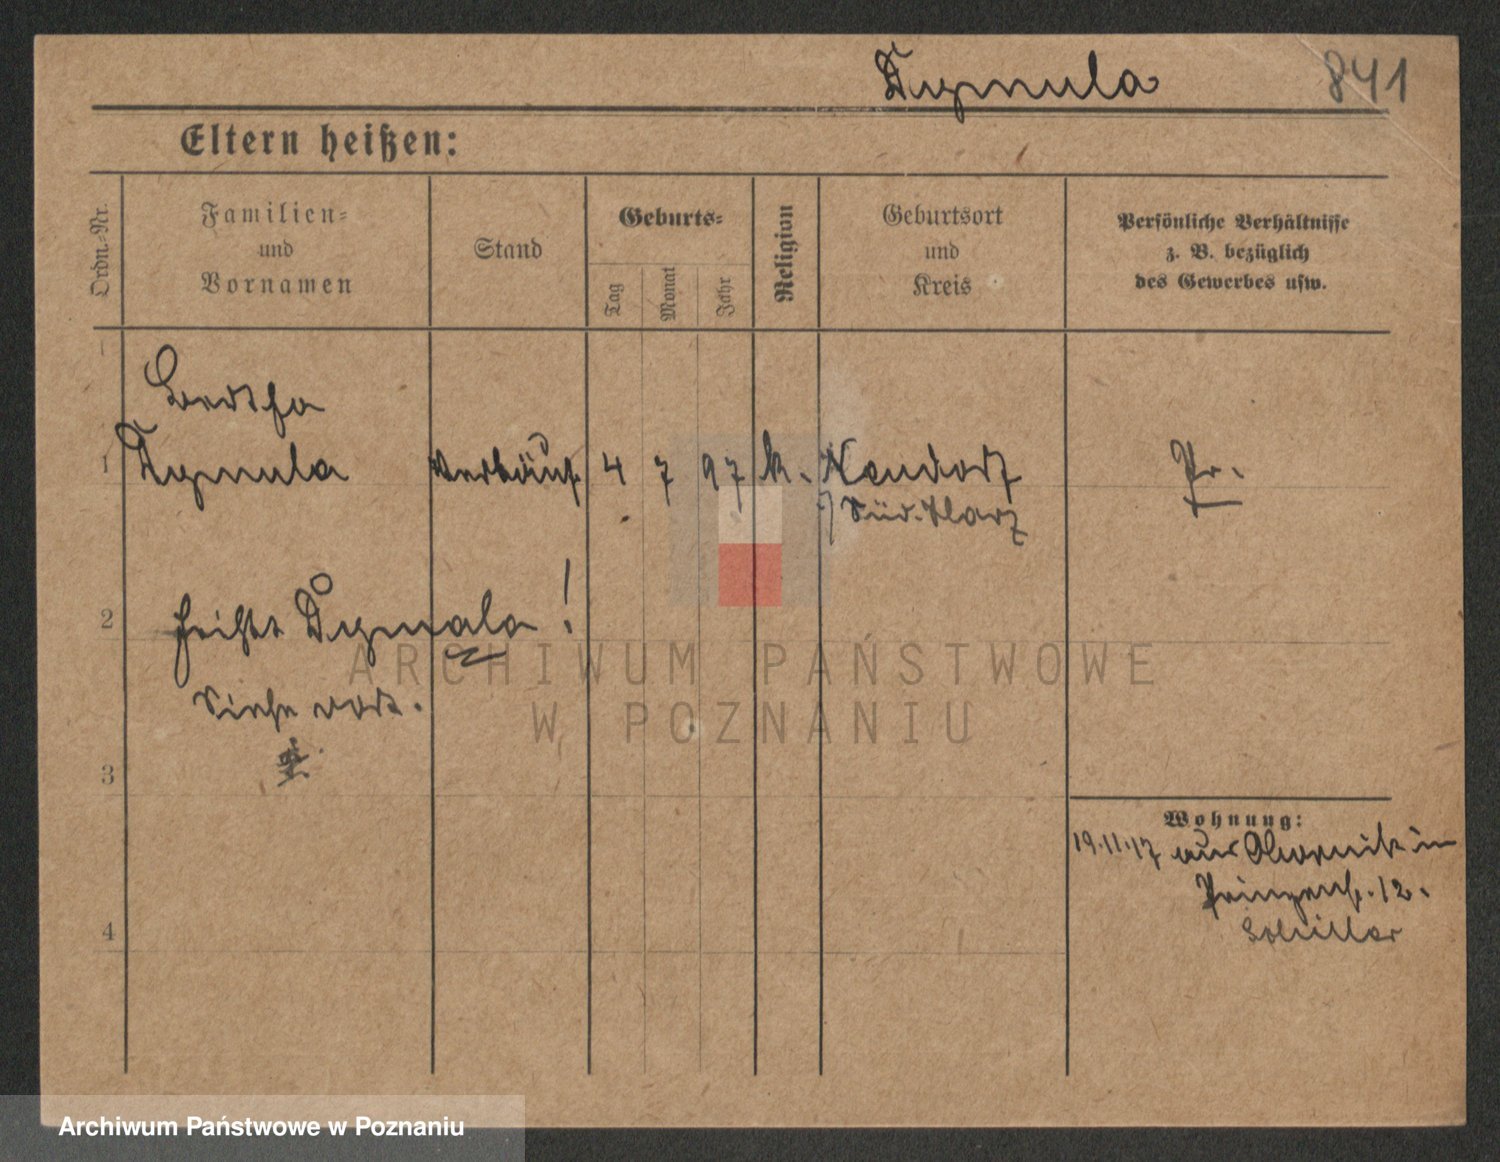 Dymula 841
Eltern heißen:
Ordn.-Nr.
Familien-
und
Vornamen
Stand
Geburts-
Tag
Monat
Jahr
Religion
Geburtsort
und
Kreis
Persönliche Verhältnisse
z. B. bezüglich
des Gewerbes usw.
Bertha
1 Dymula Verkäuf. 4 7 97 k. Neudorf Pr.
Süd. Harz
2 heißt Dymala!
Siehe dort.
3
Wohnung:
19.11.17 aus Obornik in
Prinzenstr. 12.
4
ARCHIWUM PAŃSTWOWE
W POZNANIU
Archiwum Państwowe w Poznaniu